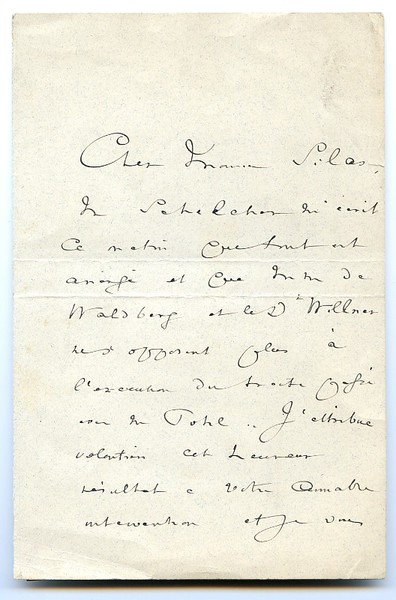 Cher Monsieur Silas,
Mr Schelcher m'écrit
ce matin que tout est
arrangé et que MM de
Waldberg et le Dr Willner
ne s'opposent plus à
l'exécution du traité passé
avec Mr
J'attribue
volontiers cet heureux
résultat à votre aimable
intervention et je vous